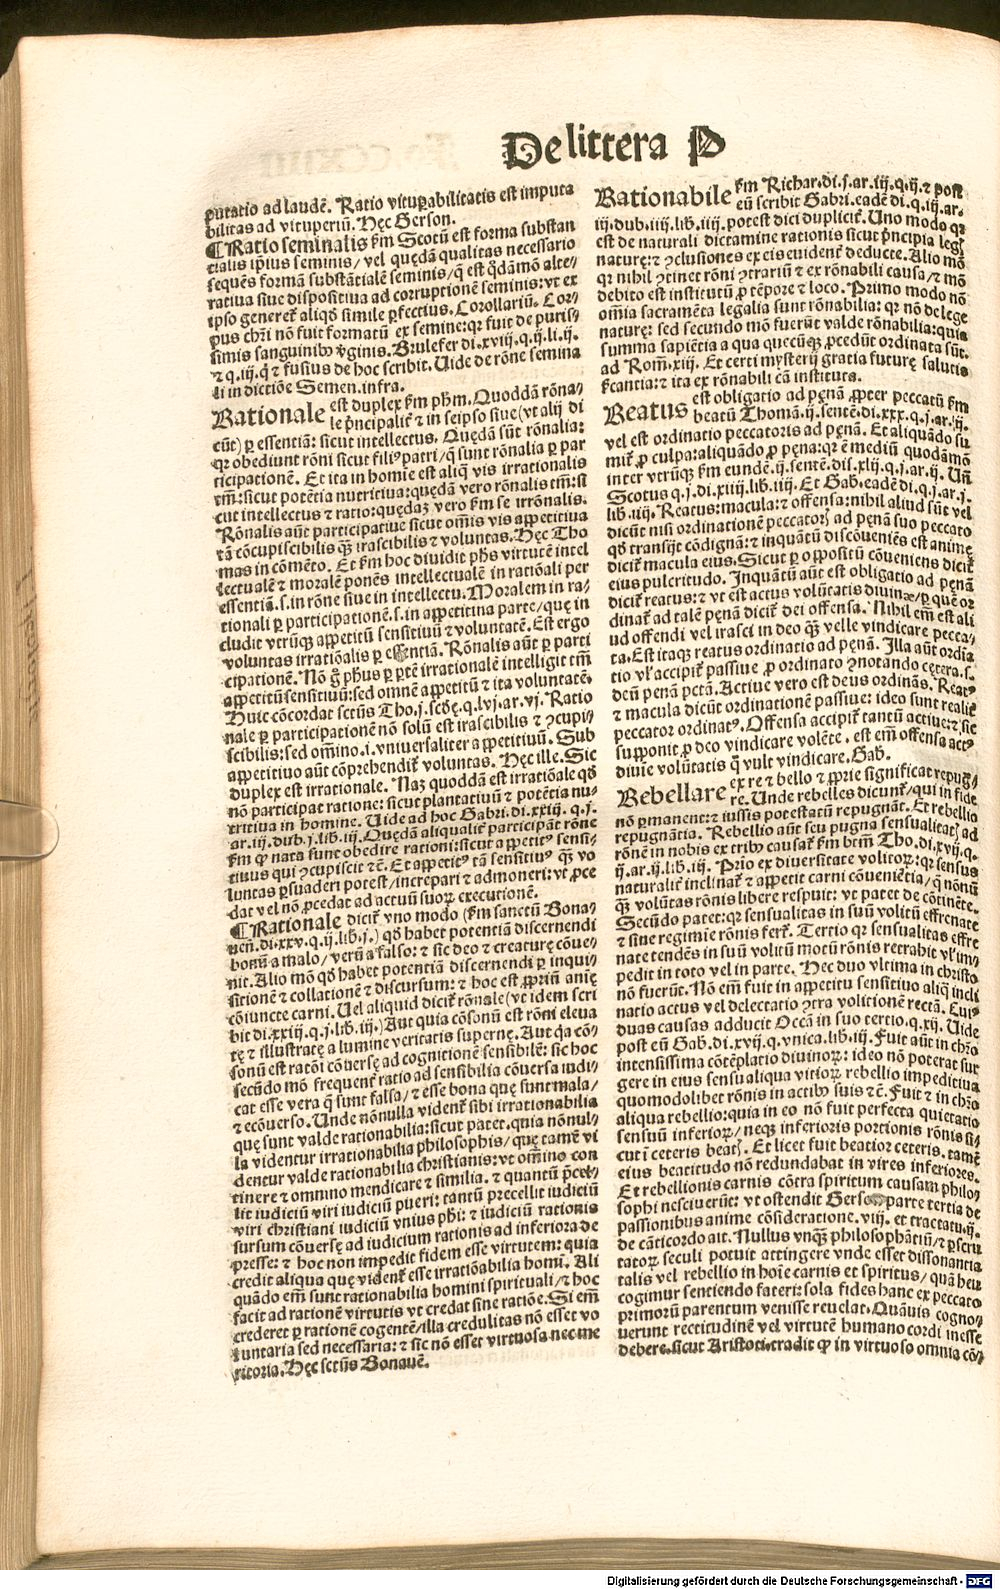 De littera P
putatio ad laudẽ. Ratio vitupabilitatis est imputa
bilitas ad vituperiũ. Hęc Gerson.
¶ Ratio seminalis ẜm Scotũ est forma substan
tialis ipsius seminis/ vel quędã qualitas necessario
sequẽs formã substãtialẽ seminis/ q̃ est q̃dãmõ alte/
ratiua siue dispositiua ad corruptionẽ seminis: vt ex
ipso generet̃ aliqđ simile ꝑfectius. Corollariũ. Cor/
pus chr̃i nõ fuit formatũ ex semine: qꝛ fuit de puris/
simis sanguinibꝰ v̓ginis. Brulefer di. xviij. q. ij. li. ij.
⁊ q. iij. q̃ ⁊ fusius de hoc scribit. Uide de rõne semina
li in dictiõe Semen. infra.
Rationale est duplex ẜm ph̃m. Quoddã rõna/
le p̃ncipalit̃ ⁊ in seipso siue (vt alij di
cũt) ꝑ essentiã: sicut intellectus. Quędã sũt rõnalia:
qꝛ obediunt rõni sicut filiꝰ patri/ q̃ sunt rõnalia ꝑ par
ticipationẽ. Et ita in homie est aliq̃ vis irrationalis
tm̃: sicut potẽtia nutritiua: quędã vero rõnalis tm̃: si
cut intellectus ⁊ ratio: quędaꝫ vero ẜm se irrõnalis.
Rõnalis aũt participatiue sicut om̃is vis appetitiua
tã cõcupiscibilis q̃ꝫ irascibilis ⁊ voluntas. Hęc Tho
mas in cõmẽto. Et ẜm hoc diuidit ph̃s virtutẽ intel
lectualẽ ⁊ moralẽ ponẽs intellectualẽ in ratiõali per
essentiã. s. in rõne siue in intellectu. Moralem in ra/
tionali ꝑ participationẽ. s. in appetitiua parte/ quę in
cludit vtrũqꝫ appetitũ sensitiuũ ⁊ voluntatẽ. Est ergo
voluntas irratiõalis ꝑ essentiã. Rõnalis aũt ꝑ parti
cipationẽ. Nõ g̃ ph̃us ꝑ ptẽ irrationalẽ intelligit tm̃
appetitũ sensitiuũ: sed omnẽ appetitũ ⁊ ita voluntatẽ.
Huic cõcordat sctũs Tho. j. scđę. q. lvj. ar. vj. Ratio
nale ꝑ participationẽ nõ solũ est irascibilis ⁊ ↄcupi/
scibilis: sed om̃ino. i. vniuersaliter appetitiuũ. Sub
appetitiuo aũt cõprehendit̃ voluntas. Hęc ille. Sic
duplex est irrationale. Naꝫ quoddã est irratiõale qđ
nõ participat ratione: sicut plantatiuũ ⁊ potẽtia nu/
tritiua in homine. Uide ad hoc Gabri. di. xxiij. q. j.
ar. iij. dub. j. lib. iij. Quędã aliqualit̃ participãt rõne
ẜm ꝙ nata sunt obedire rationi: sicut appetitꝰ sensi/
tiuus qui ↄcupiscit ⁊c̃. Et appetitꝰ tã sensitiuꝰ q̃ꝫ vo
luntas ꝑsuaderi potest/ increpari ⁊ admoneri: vt ꝓce
dat vel nõ ꝓcedat ad actuũ suoꝝ executionẽ.
¶ Rationale dicit̃ vno modo (ẜm sanctũ Bona/
uen̄. di. xxv. q. ij. lib. j.) qđ habet potentiã discernendi
bonũ a malo/ verũ a falso: ⁊ sic deo ⁊ creaturę cõue/
nit. Alio mõ qđ habet potentiã discernendi ꝑ inqui/
sitionẽ ⁊ collationẽ ⁊ discursum: ⁊ hoc est ꝓpriũ anię
cõiuncte carni. Uel aliquid dicit̃ rõnale (vt idem scri
bit di. xxiij. q. j. lib. iij.) Aut quia cõsonũ est rõni eleua
tę ⁊ illustratę a lumine veritatis supernę. Aut q̃a cõ/
sonũ est ratõi cõuersę ad cognitionẽ sensibilẽ: sic hoc
secũdo mõ frequent̃ ratio ad sensibilia cõuersa iudi/
cat esse vera q̃ sunt falsa/ ⁊ esse bona quę sunt mala/
⁊ ecõuerso. Unde nõnulla vident̃ sibi irrationabilia
quę sunt valde rationabilia: sicut patet. quia nõnul/
la videntur irrationabilia philosophis/ quę tamẽ vi
dentur valde rationabilia christianis: vt om̃ino con
tinere ⁊ omnino mendicare ⁊ similia. ⁊ quantũ p̃cel/
lit iudiciũ viri iudiciũ pueri: tantũ precellit iudiciũ
viri christiani iudiciũ vnius ph̃i: ⁊ iudiciũ rationis
sursum cõuersę ad iudicium rationis ad inferiora de
presse: ⁊ hoc non impedit fidem esse virtutem: quia
credit aliqua quę vident̃ esse irratiõabilia homũ. Ali
quãdo em̃ sunt rationabilia homini spirituali/ ⁊ hoc
facit ad rationẽ virtutis vt credat sine ratiõe. Si em̃
crederet ꝑ rationẽ cogentẽ/ illa credulitas nõ esset vo
luntaria sed necessaria: ⁊ sic nõ esset virtuosa nec me
ritoria. Hęc sctũs Bonauẽ.
Rationabile ẜm Richar. di. j. ar. iij. q. ij. ⁊ post
eũ scribit Gabri. eadẽ di. q. iij. ar.
iij. dub. iiij. lib. iiij. potest dici duplicit̃. Uno modo qꝛ
est de naturali dictamine rationis sicut p̃ncipia legꝭ
naturę: ⁊ ↄclusiones ex eis euident̃ deducte. Alio mõ
qꝛ nihil ↄtinet rõni ↄtrariũ ⁊ ex rõnabili causa/ ⁊ mõ
debito est institutũ ꝓ tẽpore ⁊ loco. Primo modo nõ
om̃ia sacramẽta legalia sunt rõnabilia: qꝛ nõ de lege
naturę: sed secundo mõ fuerũt valde rõnabilia: quia
summa sapiẽtia a qua quecũqꝫ ꝓcedũt ordinata sũt.
ad Rom̃. xiij. Et certi mysterij gratia futurę salutis
p̃cantia: ⁊ ita ex rõnabili cã instituta.
Reatus est obligatio ad pęnã ꝓpter peccatũ ẜm
beatũ Thomã. ij. sentẽ. di. xxx. q. j. ar. ij.
vel est ordinatio peccatoris ad pęnã. Et aliquãdo su
mit̃ ꝓ culpa: aliquãdo ꝓ pęna: qꝛ ẽ mediũ quodãmõ
inter vtrũqꝫ ẜm eundẽ. ij. sentẽ. dis. xlij. q. j. ar. ij. Uñ
Scotus q. j. di. xiiij. lib. iiij. Et Gab. eadẽ di. q. j. ar. j.
lib. iiij. Reatus: macula: ⁊ offensa: nihil aliud sũt vel
dicũt nisi ordinationẽ peccatorꝭ ad pęnã suo peccato
qđ transijt cõdignã: ⁊ inquãtũ discõueniẽs est animę
dicit̃ macula eius. Sicut ꝑ oppositũ cõueniens dicit̃
eius pulcritudo. Inquãtũ aũt est obligatio ad pęnã
dicit̃ reatus: ⁊ vt est actus volũtatis diuinę/ ꝑ quẽ or
dinat̃ ad talẽ pęnã dicit̃ dei offensa. Nihil em̃ est ali
ud offendi vel irasci in deo q̃ꝫ velle vindicare pecca/
ta. Est itaqꝫ reatus ordinatio ad pęnã. Illa aũt ordia
tio vl̓ accipit̃ passiue ꝓ ordinato ↄnotando cętera. s.
deũ penã pctã. Actiue vero est deus ordinãs. Reatꝰ
⁊ macula dicũt ordinationẽ passiue: ideo sunt realit̃
peccator ordinatꝰ. Offensa accipit̃ tantũ actiue: ⁊ sic
supponit ꝓ deo vindicare volẽte. est em̃ offensa actꝰ
diuie volũtatis q̃ vult vindicare. Gab.
Rebellare ex re ⁊ bello ⁊ ꝓprie significat repug/
re. Unde rebelles dicunt̃/ qui in fide
nõ ꝑmanent: ⁊ iussis potestatũ repugnãt. Et rebellio
repugnãtia. Rebellio aũt seu pugna sensualitatꝭ ad
rõnẽ in nobis ex tribꝰ causat̃ ẜm btm̃ Tho. di. xvij. q.
ij. ar. ij. lib. iij. Prio ex diuersitate volitoꝝ: qꝛ sensus
naturalit̃ inclinat̃ ⁊ appetit carni cõueniẽtia/ q̃ nõnũ
q̃ꝫ volũtas rõnis libere respuit: vt patet de cõtinẽte.
Secũdo patet: qꝛ sensualitas in suũ volitũ effrenate
⁊ sine regimie rõnis fert̃. Tertio qꝛ sensualitas effre
nate tendẽs in suũ volitũ motũ rõnis retrahit vl̓ im/
pedit in toto vel in parte. Hec duo vltima in christo
nõ fuerũt. Nõ em̃ fuit in appetitu sensitiuo aliq̃ incli
natio actus vel delectatio ↄtra volitionẽ rectã. Eiuꝰ
duas causas adducit Occã in suo tertio. q. xij. Uide
post eũ Gab. di. xvij. q. vnica. lib. iij. Fuit aũt in chr̃o
intensissima cõtẽplatio diuinoꝝ: ideo nõ poterat sur
gere in eius sensu aliqua vitioꝝ rebellio impeditiua
quomodolibet rõnis in actibꝰ suis ⁊c̃. Fuit ⁊ in chr̃o
aliqua rebellio: quia in eo nõ fuit perfecta quietatio
sensuũ inferioꝝ/ neqꝫ inferioris portionis rõnis si/
cut ĩ ceteris beatꝭ. Et licet fuit beatior ceteris. tamẽ
eius beatitudo nõ redundabat in vires inferiores.
Et rebellionis carnis cõtra spiritum causam philo/
sophi nesciuerũt: vt ostendit Gerson parte tertia de
passionibus anime cõsideratione. viij. et tractatu. ij.
de cãticordo ait. Nullus vnq̃ꝫ philosophãtiũ/ ⁊ ꝑscru
tatoꝝ seculi potuit attingere vnde esset dissonantia
talis vel rebellio in hoĩe carnis et spiritus/ quã heu
cogimur sentiendo fateri: sola fides hanc ex peccato
primorũ parentum venisse reuelat. Quãuis cogno/
uerunt rectitudinẽ vel virtutẽ humano cordi inesse
debere. sicut Aristoti. tradit ꝙ in virtuoso omnia cõ/
Digitalisierung gefördert durch die Deutsche Forschungsgemeinschaft - DFG